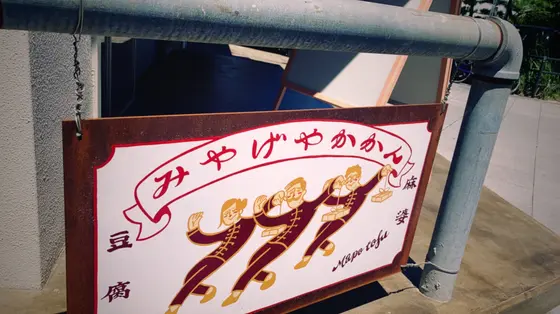 みやげやかかん
麻婆
豆腐
Mapo tofu